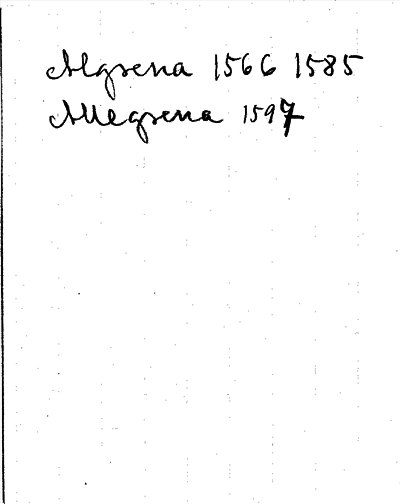 Algsena 1566 1585
Allegsena 1597